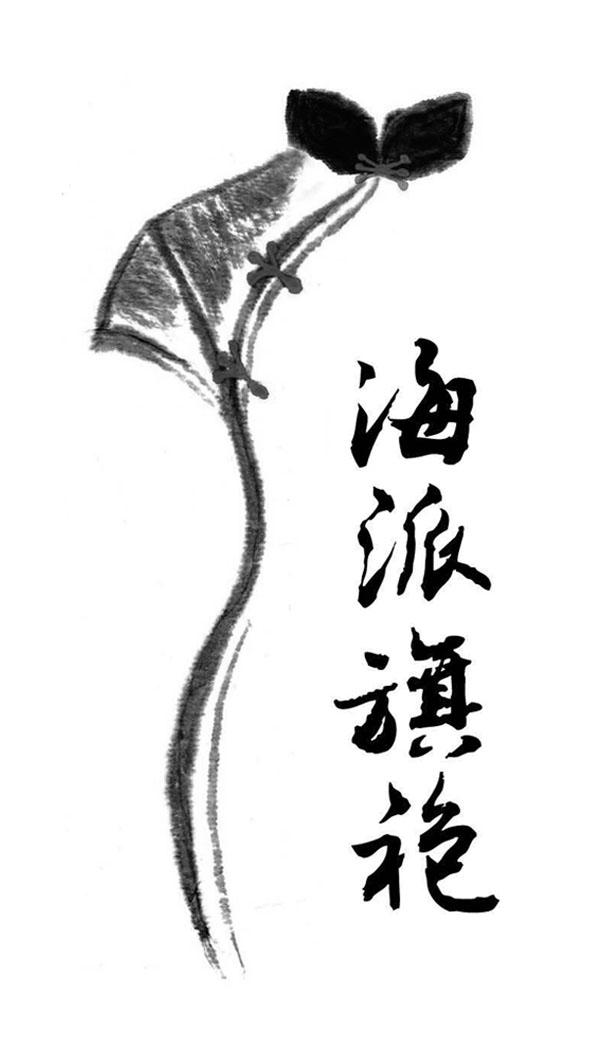 海派旗袍